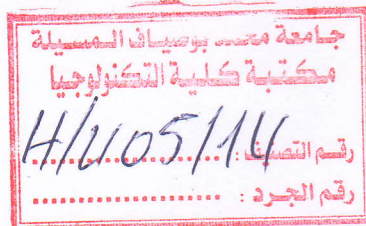 جامعة محمد بوضياف المسيلة
مكتبة كلية التكنولوجيا
رقم التصنيف :
رقم الجرد :